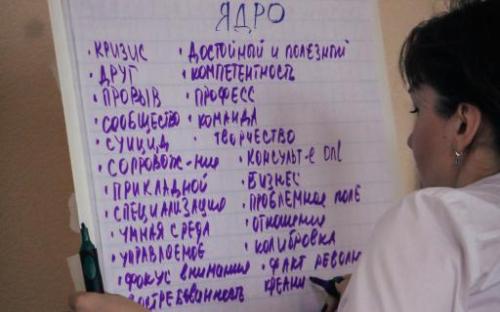 ЯДРО
• КРИЗИС • ДОСТОЙНЫЙ И ПОЛЕЗНЫЙ
• ДРУГ • КОМПЕТЕНТНОСТЬ
• ПРОРЫВ • ПРОФЕСС
• СООБЩЕСТВО • КОМАНДА
• СУИЦИД • ТВОРЧЕСТВО
• СОПРОВОЖ-НИЕ • КОНСУЛЬТ-Е
• ПРИКЛАДНОЙ • БИЗНЕС
• СПЕЦИАЛИЗАЦИЮ • ПРОБЛЕМНОЕ ПОЛЕ
• УМНАЯ СРЕДА • ОТНОШЕНИЯ
• УПРАВЛЯЕМОЕ • КАЛИБРОВКА
• ФОКУС ВНИМАНИЯ • ФАКТ
ВОСТРЕБОВАННОСТЬ